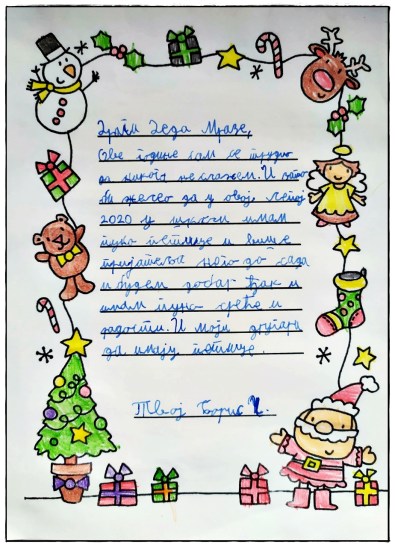 Драги Деда Мразе,
Ове године сам се трудио
да никог не слажем. И зато
би желео да у овој, лепој
2020 у школи имам
пуно петице и више
пријатеља него до сада
и будем добар ђак и
имам пуно среће и
радости. И моји другари
да имају петице.
Твој Борис Ч.